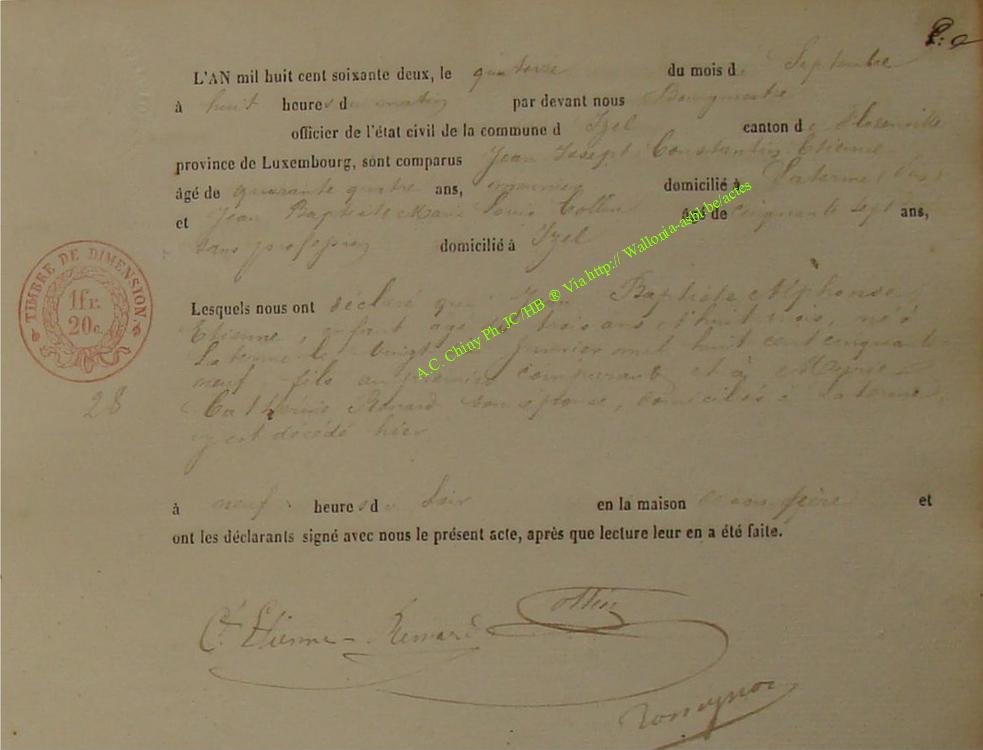 L'AN mil huit cent soixante deux, le quatorze du mois de Septembre
à huit heures du matin par devant nous Bourgmestre
officier de l'état civil de la commune d Izel canton de Florenville
province de Luxembourg, sont comparus Jean Joseph Constantin Etienne
âgé de quarante quatre ans, meunier domicilié à
et Jean Baptiste Marie Louis Collin âgé de cinquante sept ans,
sans profession domicilié à Izel
Lesquels nous ont déclaré que Jean Baptiste Alphonse
Etienne, enfant âgé de trois ans et huit mois, né à
le vingt janvier mil huit cent cinquante
neuf, fils du premier comparant et de Marie
Catherine Renard son épouse, domiciliés à
y est décédé hier
à neuf heures du soir en la maison de son père et
ont les déclarants signé avec nous le présent acte, après que lecture leur en a été faite.
Ct Etienne - Renard Collin
TIMBRE DE DIMENSION
1 fr.
20 c.
28
A.C. Chiny Ph. JC/HB ® Via http:// Wallonia-asbl.be/actes